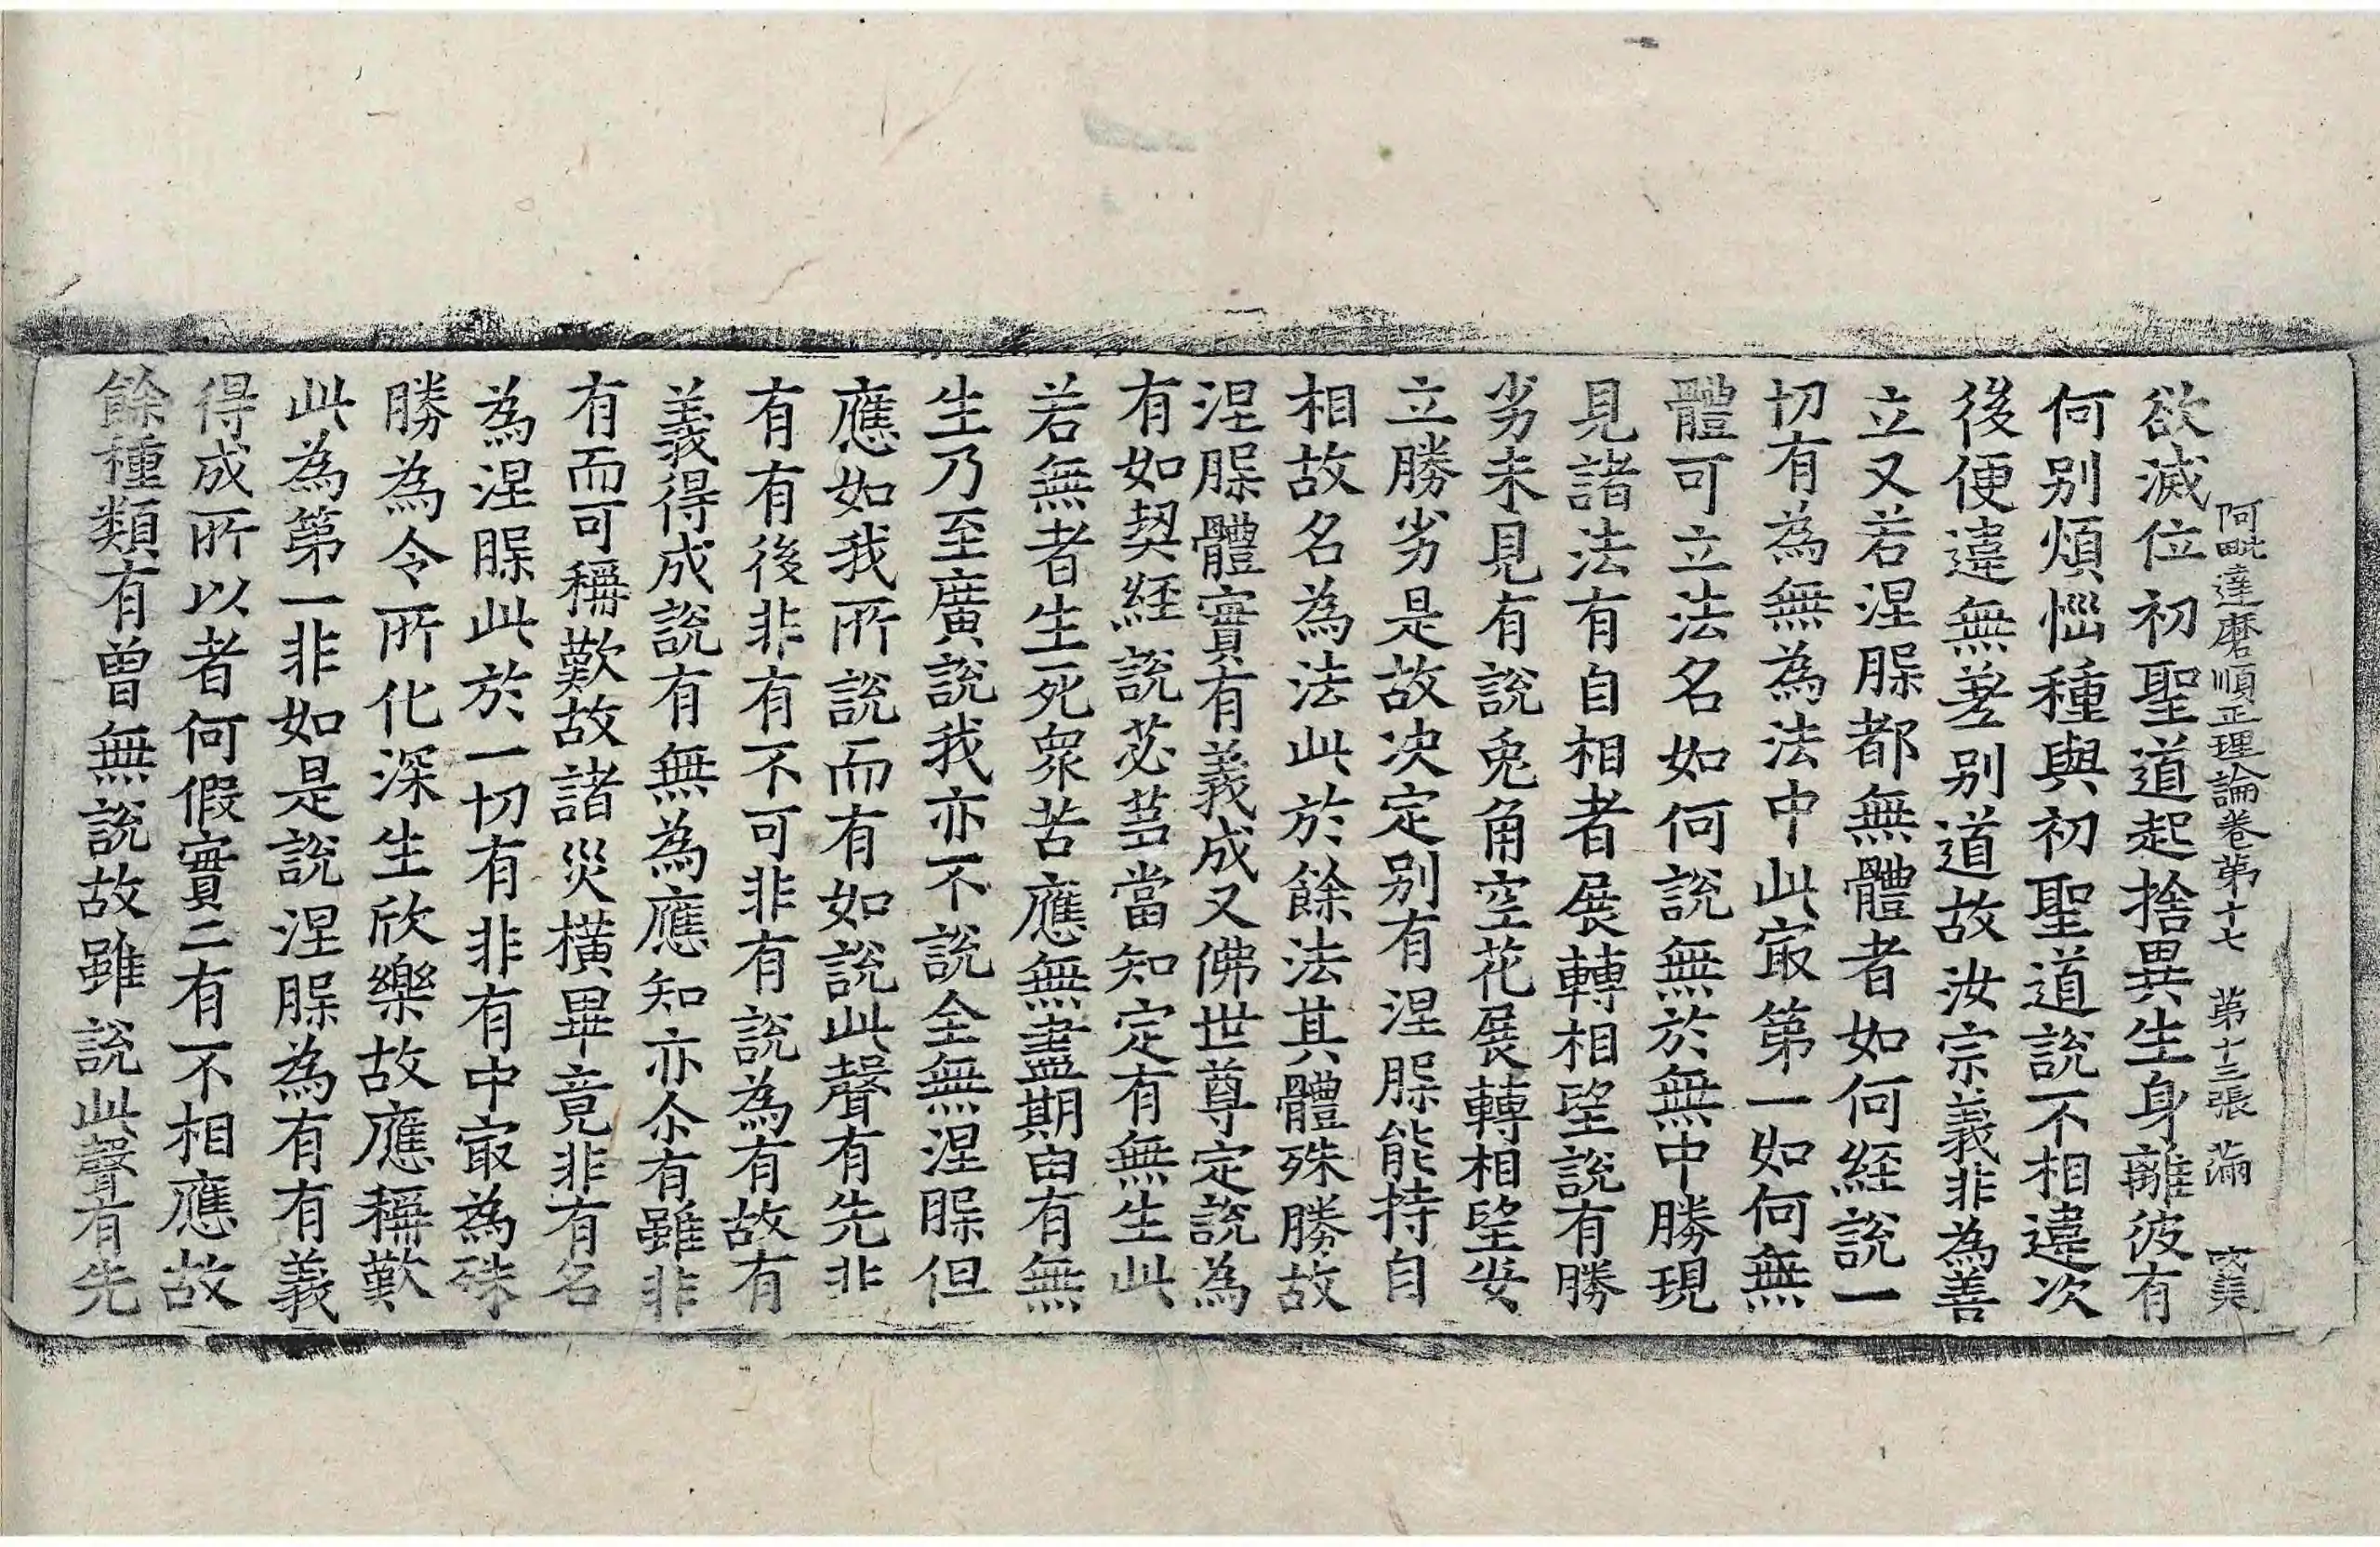 阿毗達磨順正理論卷第十七　第十三張　滿
欲滅位初聖道起捨異生身離彼有
何別煩惱種與初聖道說不相違次
後便違無差別道故汝宗義非為善
立又若涅槃都無體者如何經說一
切有為無為法中此㝡第一如何無
體可立法名如何說無於無中勝現
見諸法有自相者展轉相望說有勝
劣未見有說兔角空花展轉相望安
立勝劣是故決定別有涅槃能持自
相故名為法此於餘法其體殊勝故
涅槃體實有義成又佛世尊定說為
有如契經說苾芻當知定有無生此
若無者生死衆苦應無盡期由有無
生乃至廣說我亦不說全無涅槃但
應如我所說而有如說此聲有先非
有有後非有不可非有說為有故有
義得成說有無為應知亦尒有雖非
有而可稱歎故諸災橫畢竟非有名
為涅槃此於一切有非有中㝡為殊
勝為令所化深生欣樂故應稱歎
此為第一非如是說涅槃為有有義
得成所以者何假實二有不相應故
餘種類有曾無說故雖說此聲有先